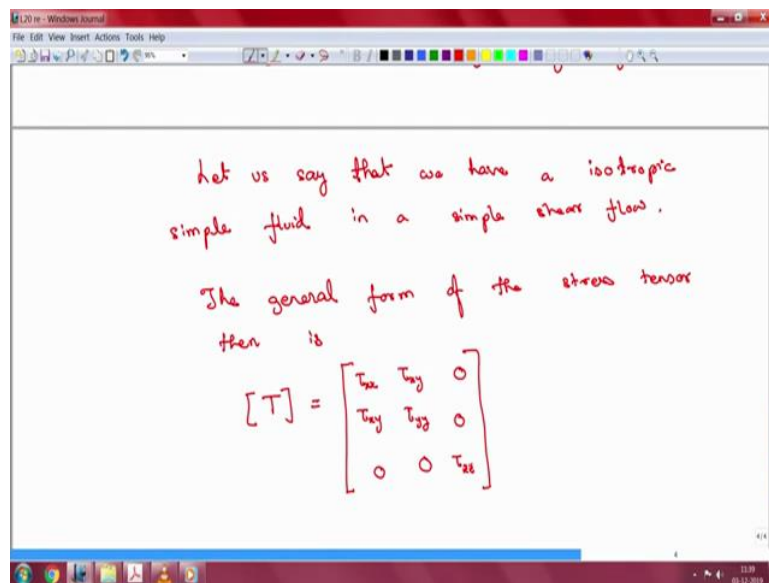 L20 re - Windows Journal
File Edit View Insert Actions Tools Help
Let us say that we have a isotropic
simple fluid in a simple shear flow.
The general form of the stress tensor
then is
[T] = [ τxx τxy 0
τxy τyy 0
0 0 τzz ]
4/4
4
11:39
03-12-2019